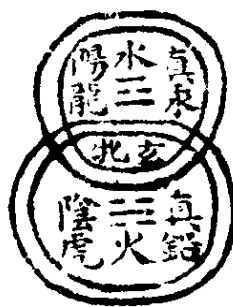 真汞
水
陽龍
玄牝
真鉛
火
陰虎